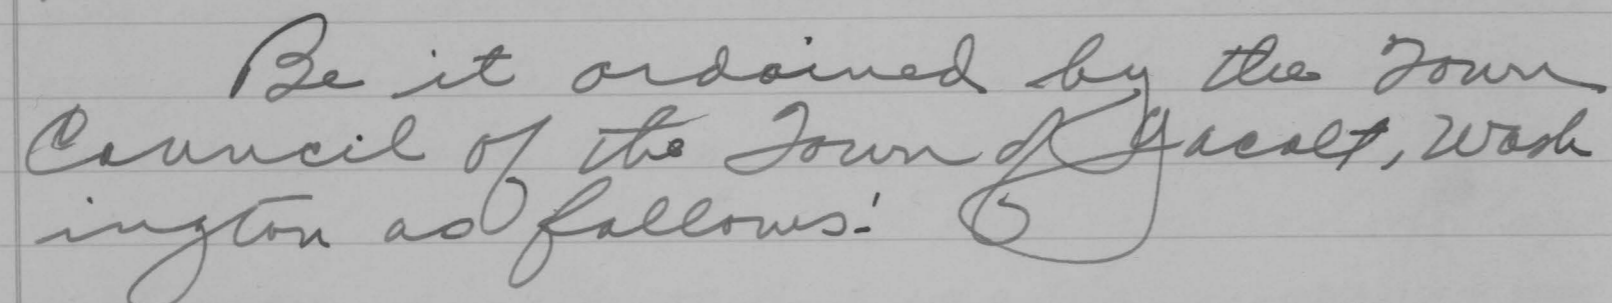 Be it ordained by the Town
Council of the Town of Yacolt, Wash
ington as follows: